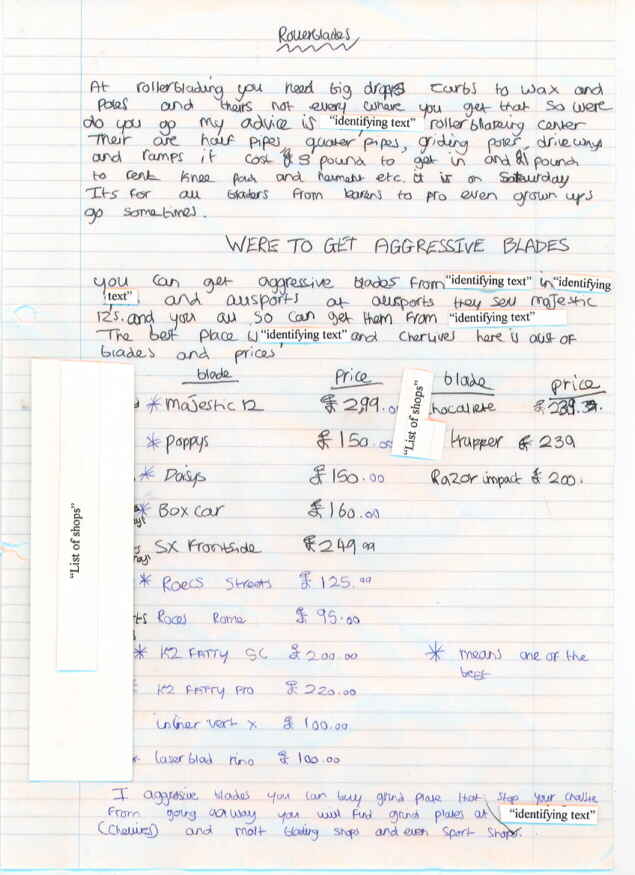 Rollerblades
At rollerblading you need big drops curbs to wax and
poles and theirs not every where you get that so were
do you go my advice is "identifying text" rollerblaiding center
Their are half pipes quater pipes, griding poles, driveways
and ramps it cost £3 pound to get in and £1 pound
to rent knee pads and healmant etc. it is on Saturday
Its for all bladers from learns to pro even grown ups
go sometimes.
WERE TO GET AGGRESSIVE BLADES
you can get aggressive blades from "identifying text" in "identifying
text", and allsports at allsports they sell majestic
12s. and you all so can get them from "identifying text"
The best place is "identifying text" and cherlives here is a list of
blades and prices
blade Price blade price
* majestic 12 £299.00 chocalete £239.
* Poppys £150.00 trapper £239
* Daisys £150.00 Razor impact £200.
* Box car £160.00
SX Frontside £249.99
* Roces Streets £125.99
Roces Rome £95.00
* K2 FATTY SC £200.00 * means one of the
best
K2 FATTY Pro £220.00
inliner vert x £100.00
laser blad rino £100.00
"List of shops"
"List of shops"
I aggressive blades you can buy grind plate that stop your chasse
From going away you will find grind plates at "identifying text"
(Cherlives) and molt blading shops and even sport shops.